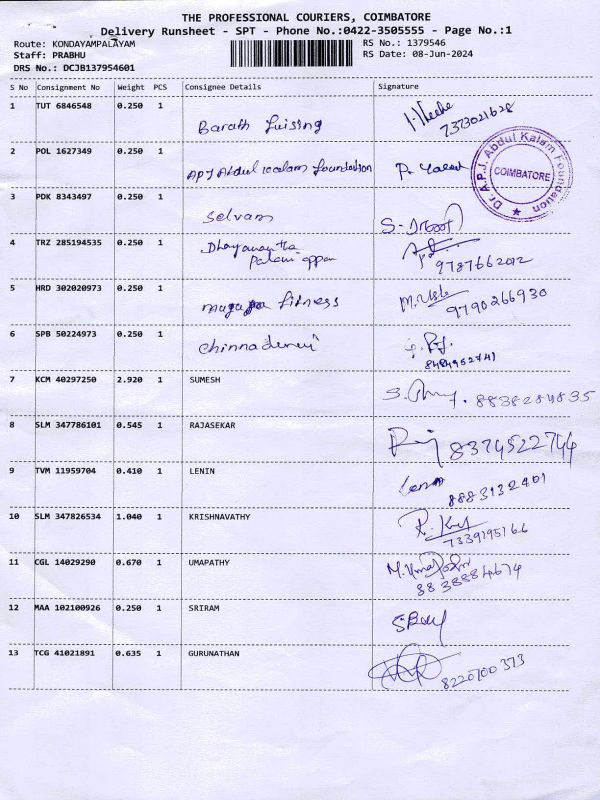 THE PROFESSIONAL COURIERS, COIMBATORE
Delivery Runsheet - SPT - Phone No.:0422-3505555 - Page No.:1
Route: KONDAYAMPALAYAM RS No.: 1379546
Staff: PRABHU RS Date: 08-Jun-2024
DRS No.: DCJB137954601
S No Consignment No Weight PCS Consignee Details Signature
1 TUT 6846548 0.250 1 Barath
7373021628
2 POL 1627349 0.250 1 APJ Abdul Kalam foundation P.
Dr. A.P.J. Abdul Kalam Foundation
COIMBATORE
3 PDK 8343497 0.250 1 Selvam S-
4 TRZ 285194535 0.250 1 Dhayanantha
Palani appan
9787662012
5 HRD 302020973 0.250 1 fitness M.
9790266930
6 SPB 50224973 0.250 1 Chinna
8484952741
7 KCM 40297250 2.920 1 SUMESH S. 8838284835
8 SLM 347786101 0.545 1 RAJASEKAR 8374522744
9 TVM 11959704 0.410 1 LENIN Lenin
8883132401
10 SLM 347826534 1.040 1 KRISHNAVATHY R.
7339195166
11 CGL 14029290 0.670 1 UMAPATHY M.
8838884674
12 MAA 102100926 0.250 1 SRIRAM
13 TCG 41021891 0.635 1 GURUNATHAN
8220700373